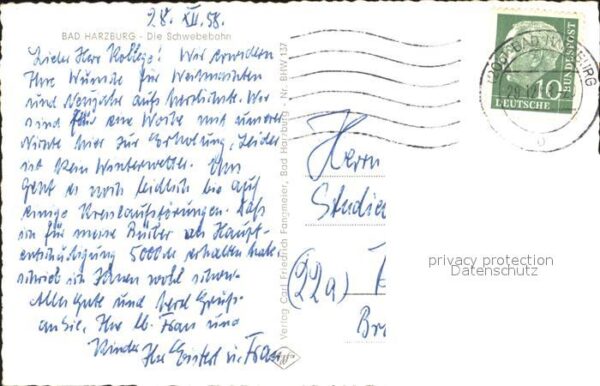 28. XII. 58.
BAD HARZBURG - Die Schwebebahn
Lieber Herr Kollege! Wir erwidern
Ihre Wünsche für Weihnachten
und Neujahr aufs herzlichste. Wir
sind für eine Woche mit unserer
Nichte hier zur Erholung, leider
ist kein Winterwetter. Uns
geht es noch leidlich bis auf
einige Kreislaufstörungen. Daß
ich für meine Bücher als Haupt-
entschädigung 5000 erhalten habe,
schrieb ich Ihnen wohl schon.
Alles Gute und herzl. Grüße
an Sie, Ihre lb. Frau und
Kinder Ihr u. Frau
Verlag Carl Friedrich Fangmeier, Bad Harzburg - Nr. BHW 137
BAD HARZBURG
29.12.
10
DEUTSCHE
BUNDESPOST
Herrn
Studie
(22a)
privacy protection
Datenschutz